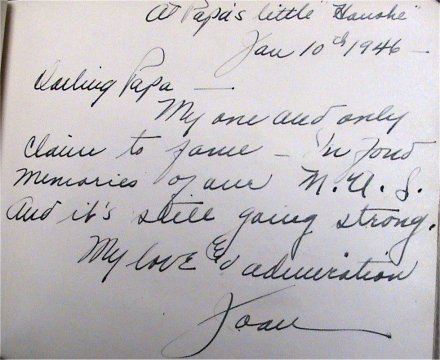 At Papa's little "Houshe"
Jan 10th 1946 —
Darling Papa —
My one and only
claim to fame — in fond
memories of our M.U.S.
And it's still going strong.
My love & admiration
Joan